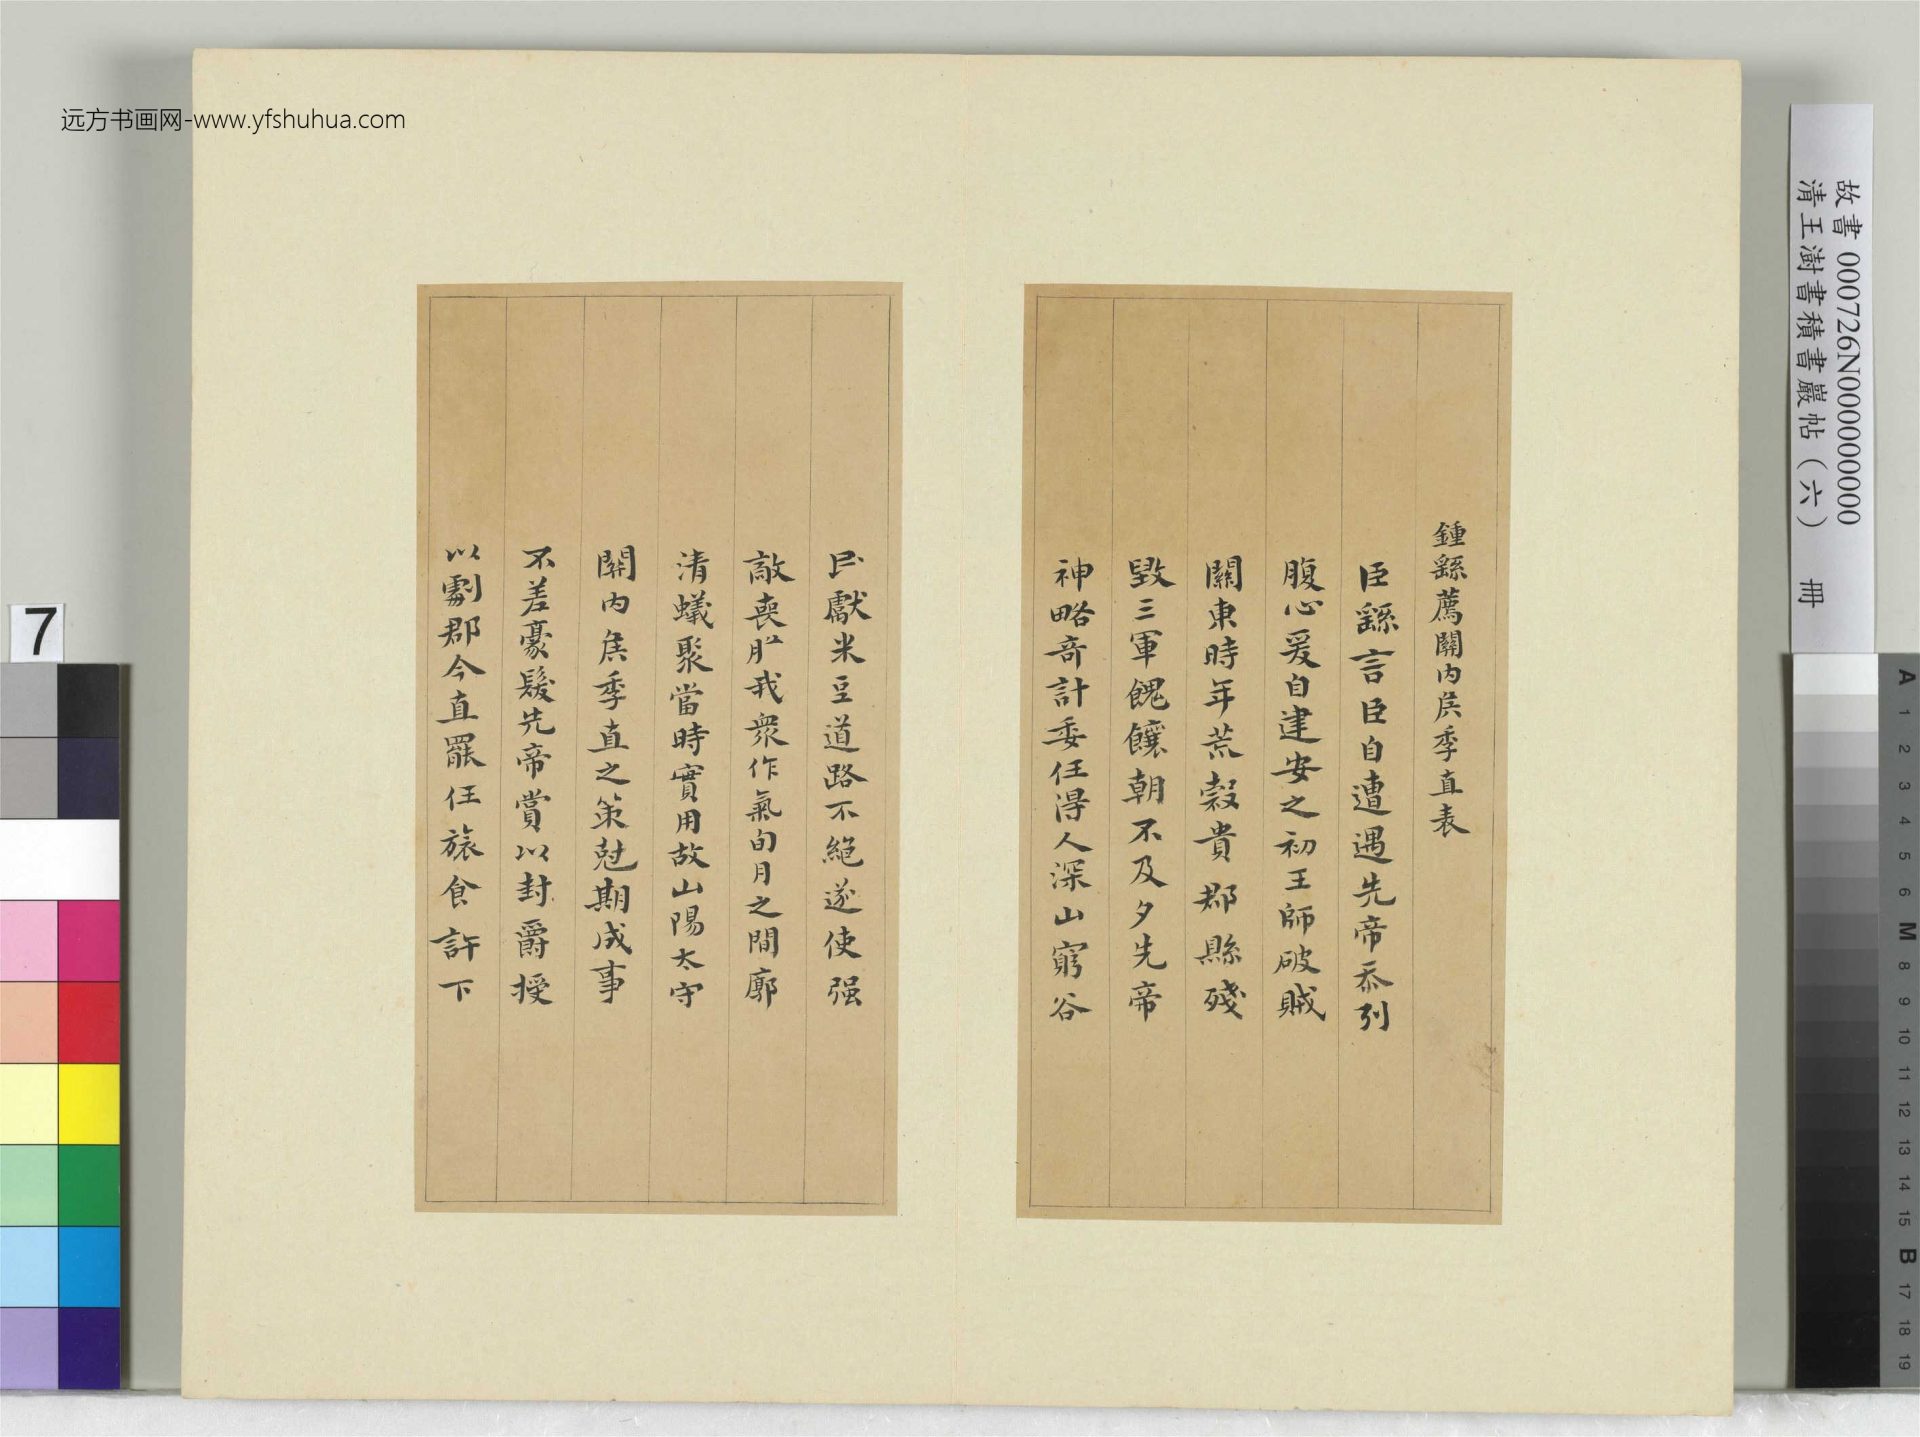 远方书画网-www.yfshuhua.com
故書 00726N000000000
清王澍書積書巖帖(六) 冊
鍾繇薦關內侯季直表
臣繇言臣自遭遇先帝忝列
腹心爰自建安之初王師破賊
關東時年荒穀貴郡縣殘
毀三軍餽饟朝不及夕先帝
神略奇計委任得人深山窮谷
民獻米豆道路不絕遂使强
敵喪膽我衆作氣旬月之間廓
清蟻聚當時實用故山陽太守
關內侯季直之策尅期成事
不差豪髮先帝賞以封爵授
以劇郡今直罷任旅食許下
7
A
1
2
3
4
5
6
M
8
9
10
11
12
13
14
15
B
17
18
19